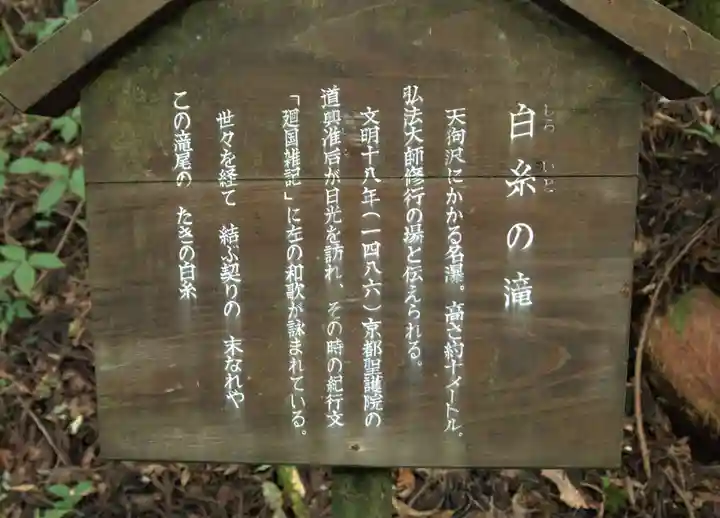 白糸の滝
しら いと
天狗沢にかかる名瀑。高さ約十メートル。
弘法大師修行の場と伝えられる。
文明十八年(一四八六)京都聖護院の
道興准后が日光を訪れ、その時の紀行文
「廻国雑記」に左の和歌が詠まれている。
世々を経て 結ぶ契りの 末なれや
この滝尾の たきの白糸